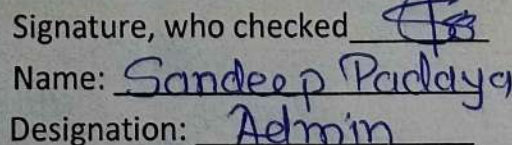 Signature, who checked
Name: Sandeep Paddya
Designation: Admin